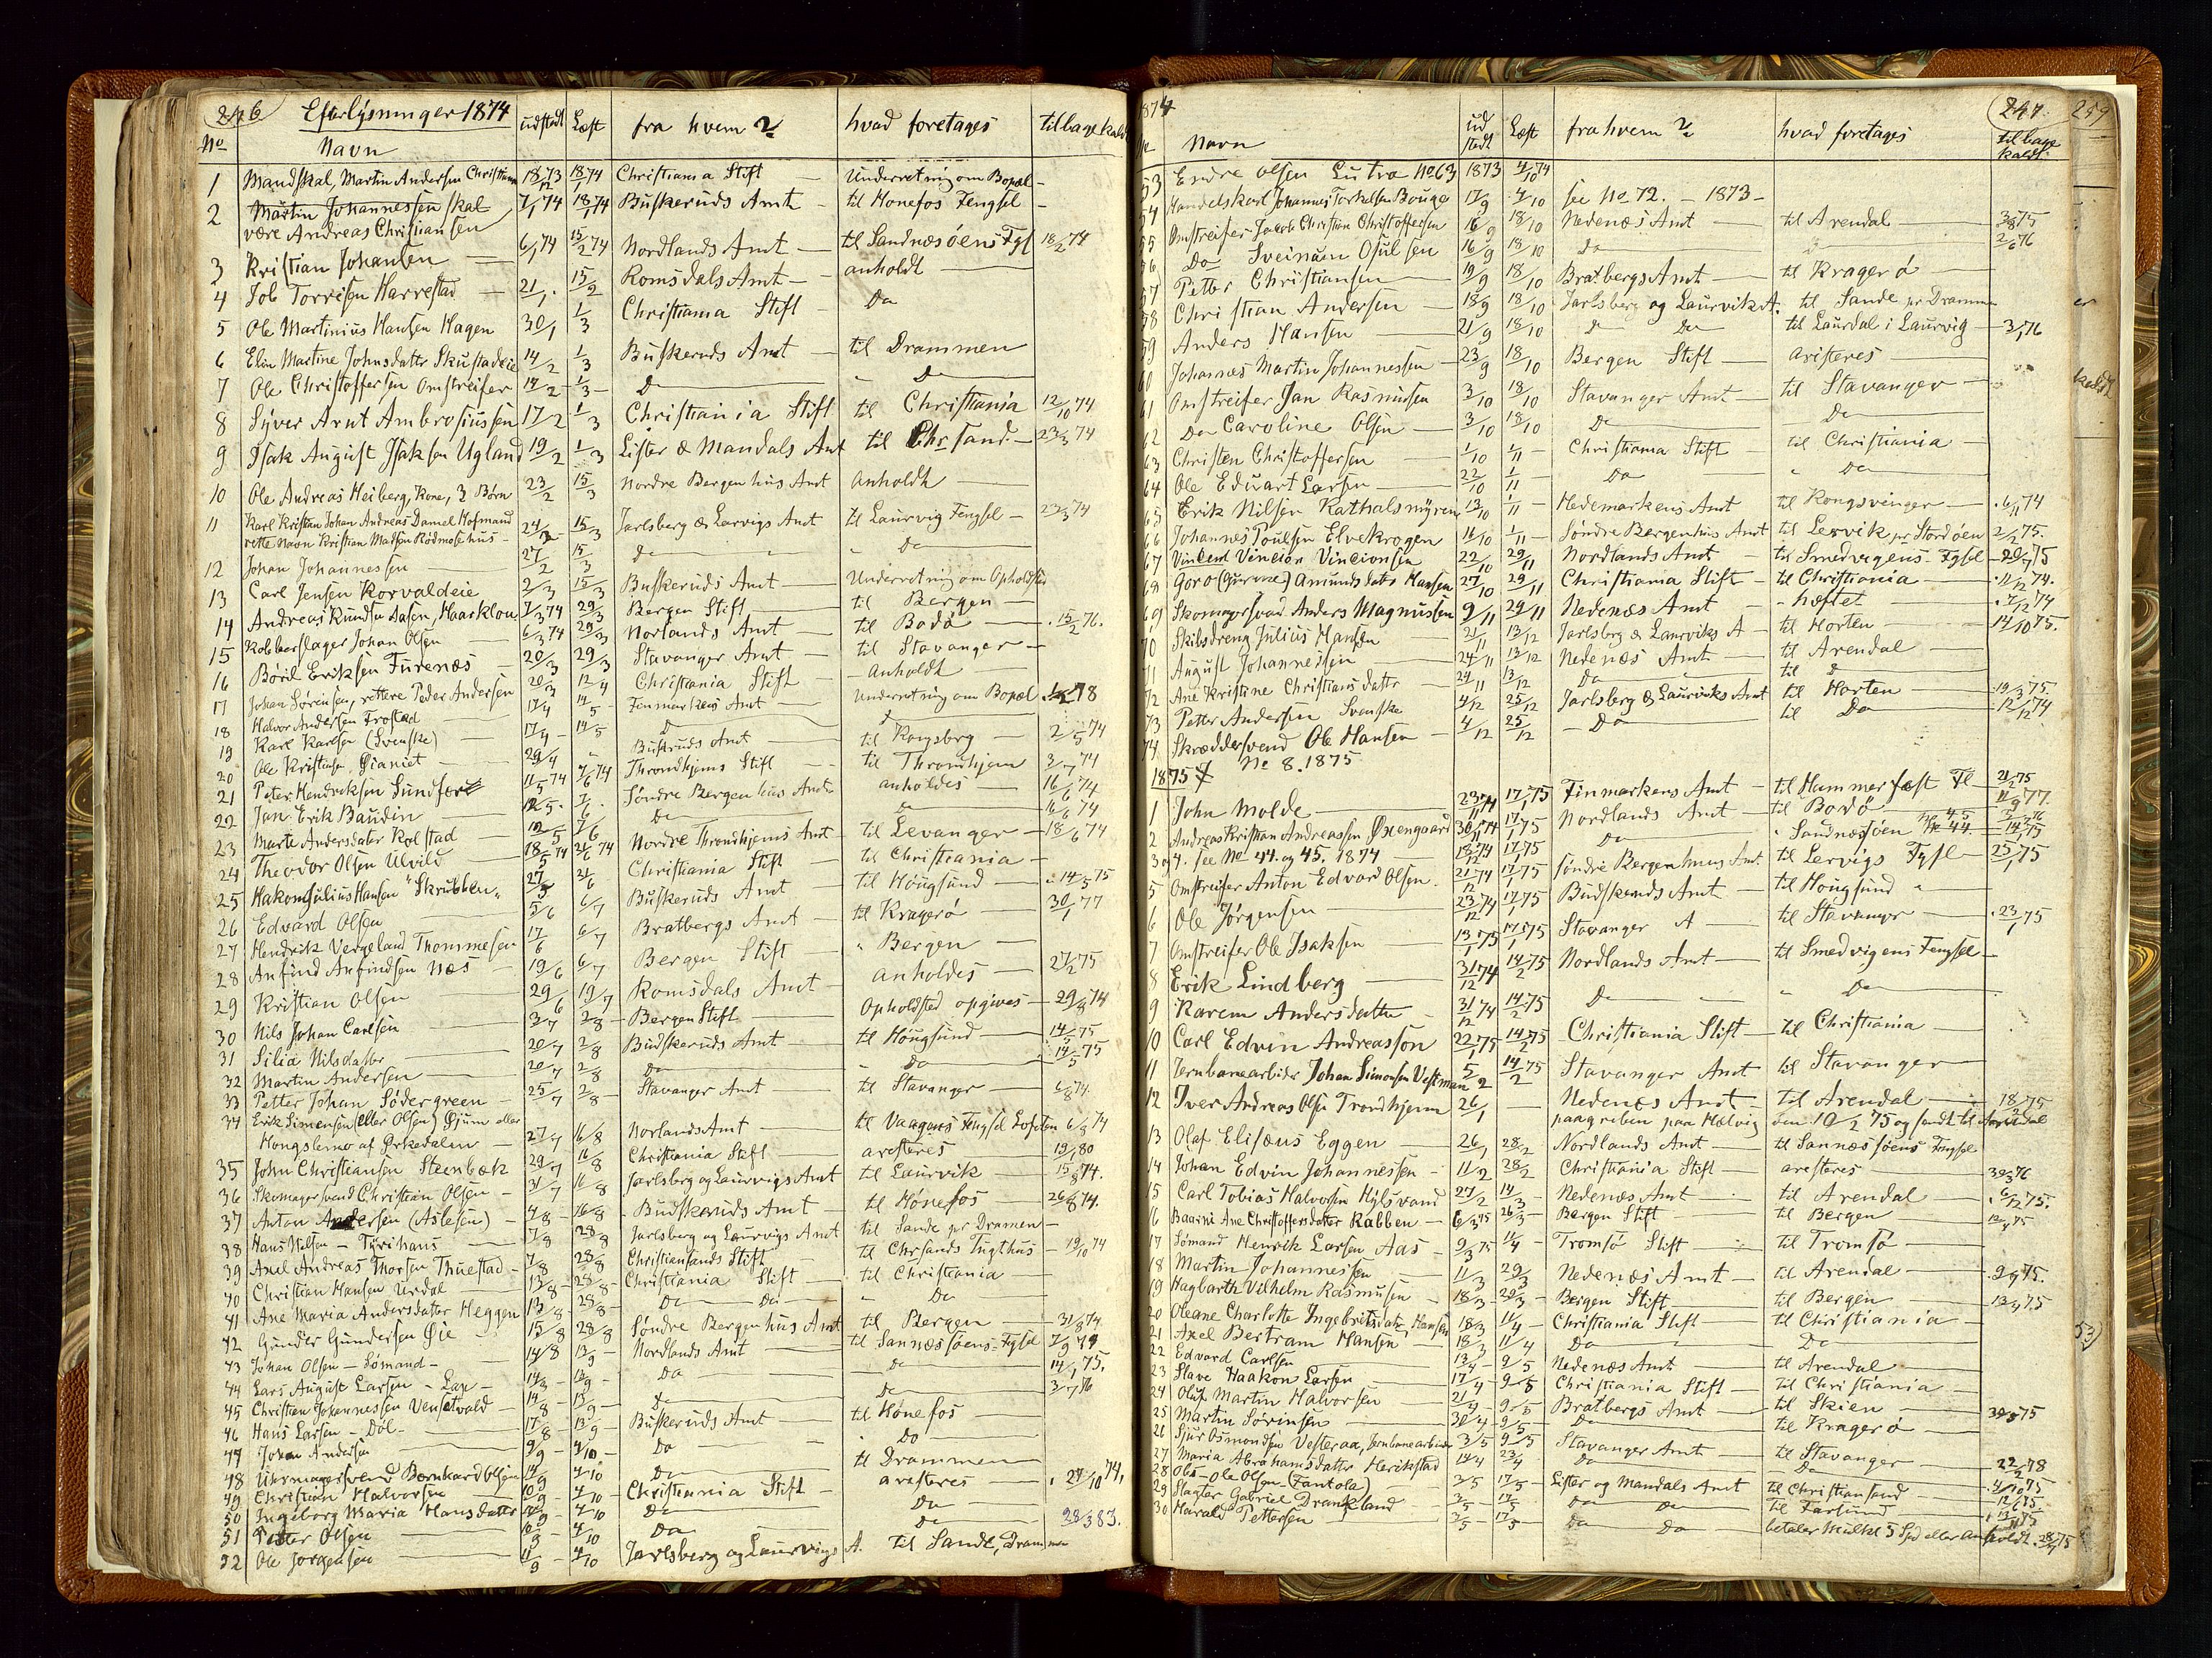 246 Efterlysninger 1874 udstedt Læst fra hvem? hvad foretages tilbagekaldt
No Navn
1 Mandskal, Martin Andersen Christiania 18/12 73 18/1 74 Christiania Stift — Underretning om Bopæl —
2 Martin Johannessen skal 7/1 74 18/1 74 Buskeruds Amt — til Hønefos Fengsel —
være Andreas Christiansen
3 Kristian Johansen — 6/1 74 15/2 74 Nordlands Amt — til Sandnæsøens Fgsl 18/2 74
4 Job Torrisen Harrestad — 21/1 15/2 Romsdals Amt — anholdt —
5 Ole Martinius Hansen Hagen 30/1 1/3 Christiania Stift — Do
6 Elin Martine Johnsdatter Skustadeie 14/2 1/3 Buskeruds Amt — til Drammen
7 Ole Christoffersen Omstreifer 14/2 1/3 Do — Do
8 Syver Arnt Ambrosiussen 17/2 1/3 Christiania Stift til Christiania 12/10 74
9 Isak August Isaksen Ugland 19/2 1/3 Lister & Mandals Amt til Chrsand — 23/3 74
10 Ole Andreas Heiberg, Kone, 3 Børn 23/2 15/3 Nordre Bergenhus Amt anholdt —
11 Karl Kristian Johan Andreas Daniel Hofmand 24/2 15/3 Jarlsberg & Larvigs Amt til Laurvig Fengsel — 23/3 74
rette Navn Kristian Madsen Rødmosehus —
12 Johan Johannessen — 27/2 15/3 Do — Do
13 Carl Jensen Korvaldeie 2/3 15/3 Buskeruds Amt — Underretning om Opholdsted
14 Andreas Knudsen Aasen, Haarklou 7/3 74 29/3 Bergen Stift — til Bergen
15 Kobberslager Johan Olsen 6/3 74 29/3 Norlands Amt — til Bodø — 15/2 76.
16 Børil Eriksen Furenæs — 20/3 29/3 Stavanger Amt — til Stavanger —
17 Johan Sørensen, rettere Peder Andersen 20/3 12/4 Christiania Stift — Anholdt —
18 Halvor Andersen Frostad 17/4 14/5 Finmarkens Amt — Underretning om Bopæl
19 Karl Karlsen (Svenske) — 17/4 14/5 Do
20 Ole Kristiansen Gianiet — 29/4 Buskruds Amt — til Kongsberg — 2/5 74
21 Peter Hendriksen Sundfør 11/5 74 7/6 74 Throndhjems Stift — til Throndhjem 3/7 74
22 Jan Erik Baudin — 12/5 7/6 Søndre Bergenhus Amt anholdes — 16/6 74
23 Marte Andersdatter Rolstad 12/5 7/6 Do — 16/6 74
24 Theodor Olsen Ulvild — 18/5 74 21/6 74 Nordre Throndhjems Amt til Levanger — 18/6 74
25 Hakon Julius Hansen "Skrubben" 27/5 21/6 Christiania Stift — til Christiania —
26 Edvard Olsen — 5/6 6/7 Buskeruds Amt — til Hougsund — 14/5 75
27 Hendrik Vergeland Thommesen 17/6 6/7 Bratbergs Amt — til Kragerø — 30/1 77
28 Anfind Anfindsen Næs — 19/6 6/7 Bergen Stift — " Bergen —
29 Kristian Olsen — 29/6 19/7 Romsdals Amt — anholdes — 27/2 75
30 Nils Johan Carlsen 3/7 2/8 Bergen Stift — Opholdsted opgives — 29/8 74
31 Silia Nilsdatter 20/7 2/8 Buskeruds Amt — til Hougsund — 14/5 75
32 Martin Andersen — 20/7 2/8 Do — Do 14/5 75
33 Petter Johan Södergreen — 25/7 2/8 Stavanger Amt — til Stavanger — 6/8 74.
34 Erik Simensen (eller Olsen) Gjum eller
Hongslemo af Ørkedalen — 27/7 16/8 Norlands Amt — til Vaagens Fengsel Lofoten 6/8 74
35 John Christiansen Steenbæk 29/7 16/8 Christiania Stift — aresteres — 80
36 Skomagersvend Christian Olsen — 31/7 16/8 Jarlsberg og Laurvigs Amt til Laurvik — 15/8 74.
37 Anton Andersen (Aslesen) — 4/8 16/8 Budskeruds Amt — til Hønefos — 26/8 74.
38 Hans Nilsen — Tyrihans — 7/8 28/8 Jarlsberg og Laurvigs Amt til Sande pr Dramen —
39 Axel Andreas Thorsen Thuestad — 7/8 28/8 Christiansands Stift til Chrsands Tugthus — 19/10 74
40 Christian Hansen Urdal 13/8 28/8 Christiania Stift — til Christiania —
41 Ane Maria Andersdatter Heggen 13/8 28/8 Do Do — Do
42 Gunder Gundersen Øie — 15/8 28/8 Søndre Bergenhus Amt til Bergen — 31/8 74.
43 Johan Olsen — Sømand — 14/8 13/9 Nordlands Amt — til Sannæssøens Fgsl 7/9 74
44 Lars August Larsen — Lap — Do — Do 14/1 75.
45 Christian Johannessen Do — Do 3/7 76
46 Hans Larsen — Døl — 17/8 13/9 Buskeruds Amt — til Hønefos —
47 Johan Andersen 9/9 4/10 Do — Do
48 Uhrmagersvend Bernhard Olsen 4/10 Do — til Drammen
49 Christian Halvorsen — 4/10 Christiania Stift — aresteres — 27/10 74.
50 Ingeborg Maria Hansdatter 4/10 Do — Do
51 Petter Olsen — 4/10 Do — Do 28/3 83.
52 Ole Jörgensen — 11/9 4/10 Jarlsberg og Laurvigs A. til Sande, Drammen
1874 247. 259
No Navn udstedt Læst fra hvem? hvad foretages tilbagekaldt.
53 Endre Olsen Lutro No 63 1873 4/10 74
54 Handelskarl Johannes Torkelsen Bouge 17/9 4/10 see No 72. — 1873 —
55 Omstreifer Jacob Christian Christoffersen 16/9 18/10 Nedenæs Amt — til Arendal —
56 Do Sveinum Osulsen 16/9 18/10 Do
57 Petter Christiansen — 19/9 18/10 Bratbergs Amt — til Kragerø —
58 Christian Andersen — 18/9 18/10 Jarlsberg og Laurvik A. til Sande pr Drammen
59 Anders Hansen — 21/9 18/10 Do Do til Laurdal i Laurvig — 3/1 76
60 Johannes Martin Johannessen — 23/9 18/10 Bergen Stift — aristeres —
61 Omstreifer Jan Rasmusen 3/10 18/10 Stavanger Amt — til Stavanger —
62 Do Caroline Olsen — 3/10 18/10 Do — Do
63 Christen Christoffersen — 1/10 1/11 Christiania Stift — til Christiania —
64 Ole Edvart Larsen — 22/10 1/11 Do — Do
65 Erik Nilsen Kathalsmyren 13/10 1/11 Hedemarkens Amt — til Kongsvinger — 6/11 74
66 Johannes Poulsen Elvekrogen 16/10 1/11 Søndre Bergenhus Amt til Lervik pr Stordøen 2/2 75.
67 Vincent Vincion Vincionsen 22/10 29/11 Nordlands Amt — til Smedvigens Fgsl — 29/7 75
68 Goro (Gurine) Amundsdatter Hansen 27/10 29/11 Christiania Stift — til Christiania — 11/12 74.
69 Skomagersvend Anders Magnussen 9/11 29/11 Nedenæs Amt — hæftet — 7/12 74
70 Skibsdreng Julius Hansen 21/11 13/12 Jarlsbrg & Laurviks A — til Horten — 14/10 75.
71 August Johannessen — 24/11 13/12 Nedenæs Amt — til Arendal —
72 Ane Kristine Christiansdatter 24/11 13/12 Do — til Do
73 Petter Andersen Svenske 4/12 25/12 Jarlsberg & Laurviks Amt til Horten — 19/3 75.
74 Skræddersvend Ole Hansen — 4/12 25/12 Do — til Do 12/12 74
No 8. 1875
1875
1 John Molde — 23/11 74 17/1 75 Finmarkens Amt — til Hammerfæst Fl 21/2 75
2 Andreas Kristian Andreassen Øxengaard 30/11 74 17/1 75 Nordlands Amt — til Bodø 11/9 77.
3 og 4. see No 44. og 45. 1874 — 18/12 74 17/1 75 Do " Sandnæssøen
5 Omstreifer Anton Edvard Olsen. 21/12 74 17/1 75 Söndre Bergenhus Amt. til Lervigs Fgsl — 25/1 75
6 Ole Jørgensen 23/12 74 17/1 75 Budskeruds Amt — til Hougsund "
7 Omstreifer Ole Isaksen 13/1 75 17/1 75 Stavanger A — til Stavanger — 23/1 75
8 Erik Lindberg — 31/12 74 14/2 75 Nordlands Amt — til Smedvigens Fengsel —
9 Karen Andersdatter — 31/12 74 14/2 75 Do — Do
10 Carl Edvin Andreasson 22/1 75 14/2 75 Christiania Stift — til Christiania —
11 Jernbanearbider Johan Simonsen Vestman 5/2 14/2 75 Stavanger Amt til Stavanger
12 Iver Andreas Olsen Trondhjem 26/1 — Nedenes Amt — til Arendal — 18/2 75
paagreben paa Hølvig den 10/2 75 og sendt til Arendal
13 Olaf Elisæus Eggen — 26/1 28/2 Nordlands Amt — til Sannæssøens Fengsel
14 Johan Edvin Johannessen — 11/2 28/2 Christiania Stift — aresteres —
15 Carl Tobias Halvorsen Hylsvand 27/2 14/3 Nedenæs Amt — til Arendal — 6/12 75.
16 Baarni Ane Christoffersdatter Rabben — 6/3 75 26/3 Bergen Stift — til Bergen —
17 Sømand Henrik Larsen Aas — 9/3 75 11/4 Tromsø Stift — til Tromsø —
18 Martin Johannessen 11/3 29/3 Nedenæs Amt — til Arendal —
19 Hagbarth Vilhelm Rasmusen — 18/3 29/3 Bergen Stift — til Bergen —
20 Oleane Charlotte Ingebritsdatter Hansen 18/3 11/4 Christiania Stift — til Christiania —
21 Axel Bertram Hansen — 18/3 11/4 Do — Do
22 Edvard Carlsen 13/4 9/5 Nedenæs Amt — til Arendal —
23 Slave Haakon Larsen — 17/4 9/5 Christiania Stift — til Christiania —
24 Oluf Martin Halvorsen 21/4 9/5 Bratbergs Amt — til Skien —
25 Martin Sørinsen — 30/4 9/5 Do — til Kragerø —
26 Sjur Osmondsen Vesteraa, Jernbanearbider 3/5 9/5 Stavanger Amt — til Stavanger —
27 Maria Abrahamsdatter Herikstad 14/4 23/4 Do — Do 22/2 78
28 Obs — Ole Olsen (Fantola) — 3/5 17/5 Lister og Mandals Amt til Christiansand —
29 Slagter Gabriel Drankland 3/5 17/5 Do Do til Farsund —
30 Harald Pettersen — 3/5 17/5 Do Do betaler Mulkt 5 Spd eller Anholdt.
53)